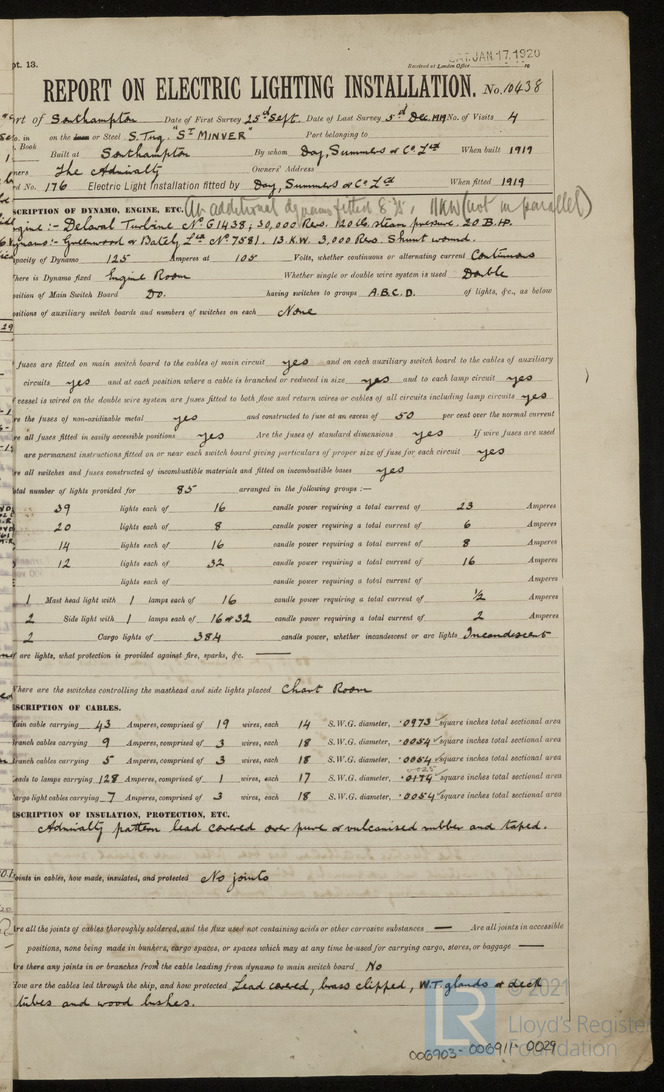 pt. 13.
SAT. JAN. 17. 1920
Received at London Office
REPORT ON ELECTRIC LIGHTING INSTALLATION. No. 10438
rt of Southampton Date of First Survey 25th Sept. Date of Last Survey 5th Dec. 1919 No. of Visits 4
o. in on the Iron or Steel S. Tug. "ST MINVER" Port belonging to
. Book Built at Southampton By whom Day, Summers & Co. Ltd When built 1919
ners The Admiralty Owners' Address
rd No. 176 Electric Light Installation fitted by Day, Summers & Co. Ltd When fitted 1919
SCRIPTION OF DYNAMO, ENGINE, ETC. (An additional dynamo fitted 11KW (not in parallel)
ngine:- Delaval Turbine No. G1438; 30,000 Revs. 120 lb. steam pressure. 20 B.H.P.
ynamo:- Greenwood & Batley Ltd No. 7581. 13. K.W. 3,000 Revs. Shunt wound.
pacity of Dynamo 125 Amperes at 105 Volts, whether continuous or alternating current Continuous
here is Dynamo fixed Engine Room Whether single or double wire system is used Double
osition of Main Switch Board Do. having switches to groups A.B.C.D. of lights, &c., as below
ositions of auxiliary switch boards and numbers of switches on each None
fuses are fitted on main switch board to the cables of main circuit yes and on each auxiliary switch board to the cables of auxiliary
circuits yes and at each position where a cable is branched or reduced in size yes and to each lamp circuit yes
vessel is wired on the double wire system are fuses fitted to both flow and return wires or cables of all circuits including lamp circuits yes
re the fuses of non-oxidizable metal yes and constructed to fuse at an excess of 50 per cent over the normal current
re all fuses fitted in easily accessible positions yes Are the fuses of standard dimensions yes If wire fuses are used
are permanent instructions fitted on or near each switch board giving particulars of proper size of fuse for each circuit yes
re all switches and fuses constructed of incombustible materials and fitted on incombustible bases yes
otal number of lights provided for 85 arranged in the following groups :—
39 lights each of 16 candle power requiring a total current of 23 Amperes
20 lights each of 8 candle power requiring a total current of 6 Amperes
14 lights each of 16 candle power requiring a total current of 8 Amperes
12 lights each of 32 candle power requiring a total current of 16 Amperes
lights each of candle power requiring a total current of Amperes
1 Mast head light with 1 lamps each of 16 candle power requiring a total current of ½ Amperes
2 Side light with 1 lamps each of 16 & 32 candle power requiring a total current of 2 Amperes
2 Cargo lights of 384 candle power, whether incandescent or arc lights Incandescent
f arc lights, what protection is provided against fire, sparks, &c. —
here are the switches controlling the masthead and side lights placed Chart Room
SCRIPTION OF CABLES.
ain cable carrying 43 Amperes, comprised of 19 wires, each 14 S.W.G. diameter, .0973 square inches total sectional area
ranch cables carrying 9 Amperes, comprised of 3 wires, each 18 S.W.G. diameter, .0054 square inches total sectional area
ranch cables carrying 5 Amperes, comprised of 3 wires, each 18 S.W.G. diameter, .0054 square inches total sectional area
eads to lamps carrying 128 Amperes, comprised of 1 wires, each 17 S.W.G. diameter, .0174 square inches total sectional area
argo light cables carrying 7 Amperes, comprised of 3 wires, each 18 S.W.G. diameter, .0054 square inches total sectional area
SCRIPTION OF INSULATION, PROTECTION, ETC.
Admiralty pattern lead covered over pure & vulcanised rubber and taped.
oints in cables, how made, insulated, and protected No joints
re all the joints of cables thoroughly soldered, and the flux used not containing acids or other corrosive substances — Are all joints in accessible
positions, none being made in bunkers, cargo spaces, or spaces which may at any time be used for carrying cargo, stores, or baggage —
re there any joints in or branches from the cable leading from dynamo to main switch board No
How are the cables led through the ship, and how protected Lead covered, brass clipped, W.T. glands & deck
tubes and wood bushes.
© 2021
LR
Lloyd's Register
Foundation
006903-006911-0029